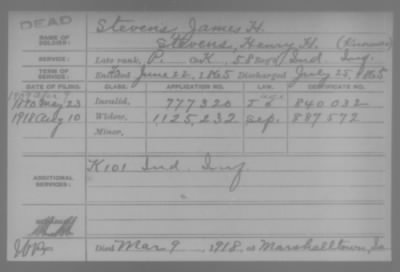 DEAD
NAME OF SOLDIER: Stevens, James H.
Stevens, Henry H.
SERVICE: Late rank, P. Co K, 58 Ind. Inf.
TERM OF SERVICE: Enlisted June 22, 1865 Discharged July 25, 1865
DATE OF FILING. CLASS. APPLICATION NO. LAW. CERTIFICATE NO.
1890 May 23 Invalid, 777320 840032
1918 Aug 10 Widow, 1,125,232 Sep. 887572
Minor,
ADDITIONAL SERVICES: K101 Ind. Inf
Died Mar 9, 1918, at Marshalltown, Ia